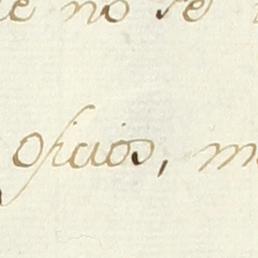 no se
oficios,